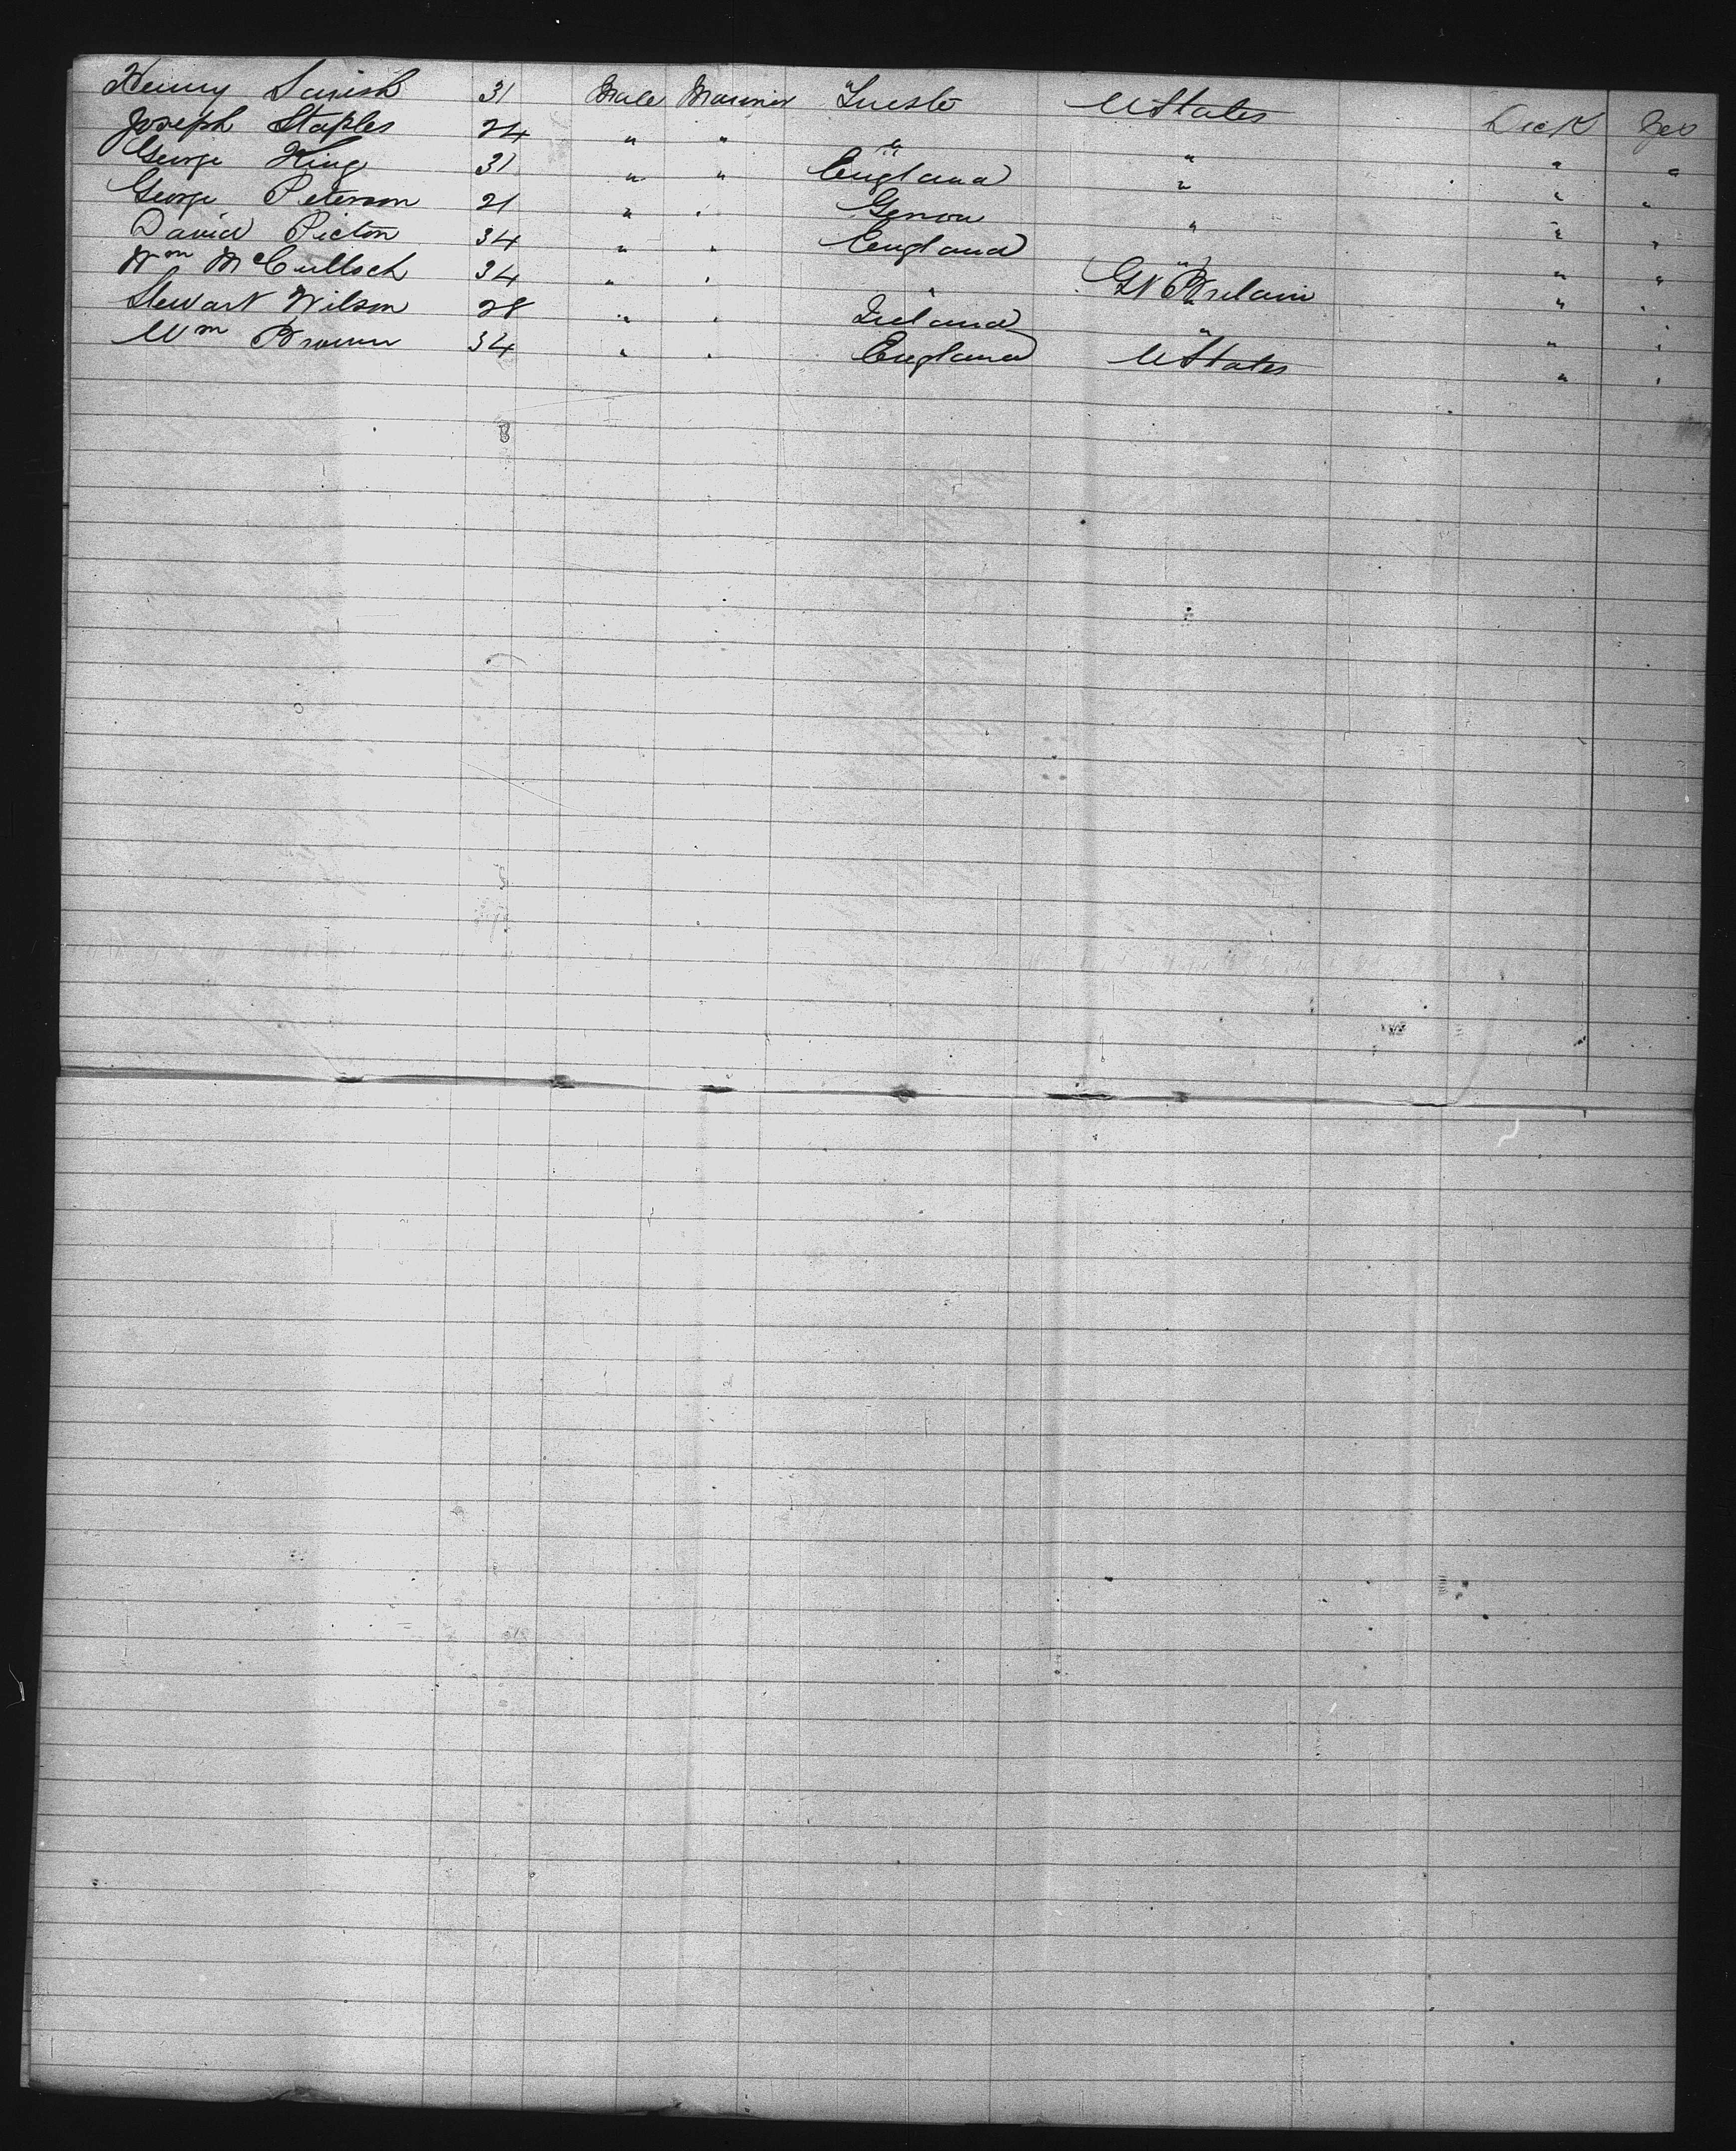 Henry 31 Male Mariner Trieste U States Deck
Joseph Staples 24 " " " " " "
George King 31 " " England " " "
George Peterson 21 " " Genoa " " "
David Picton 34 " " England " " "
Wm McCulloch 34 " " " Gt Britain " "
Stewart Wilson 28 " " Ireland " " "
Wm Brown 34 " " England U States " "